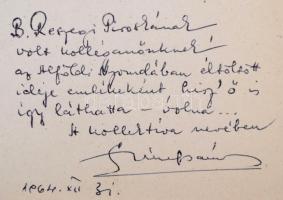 B. Reszegi Piroskának
volt kolléganőnknek
az Alföldi Nyomdában eltöltött
ideje emlékeként hisz ő is
így láthatta – volna ...
A kollektíva nevében
1964. XII 31.